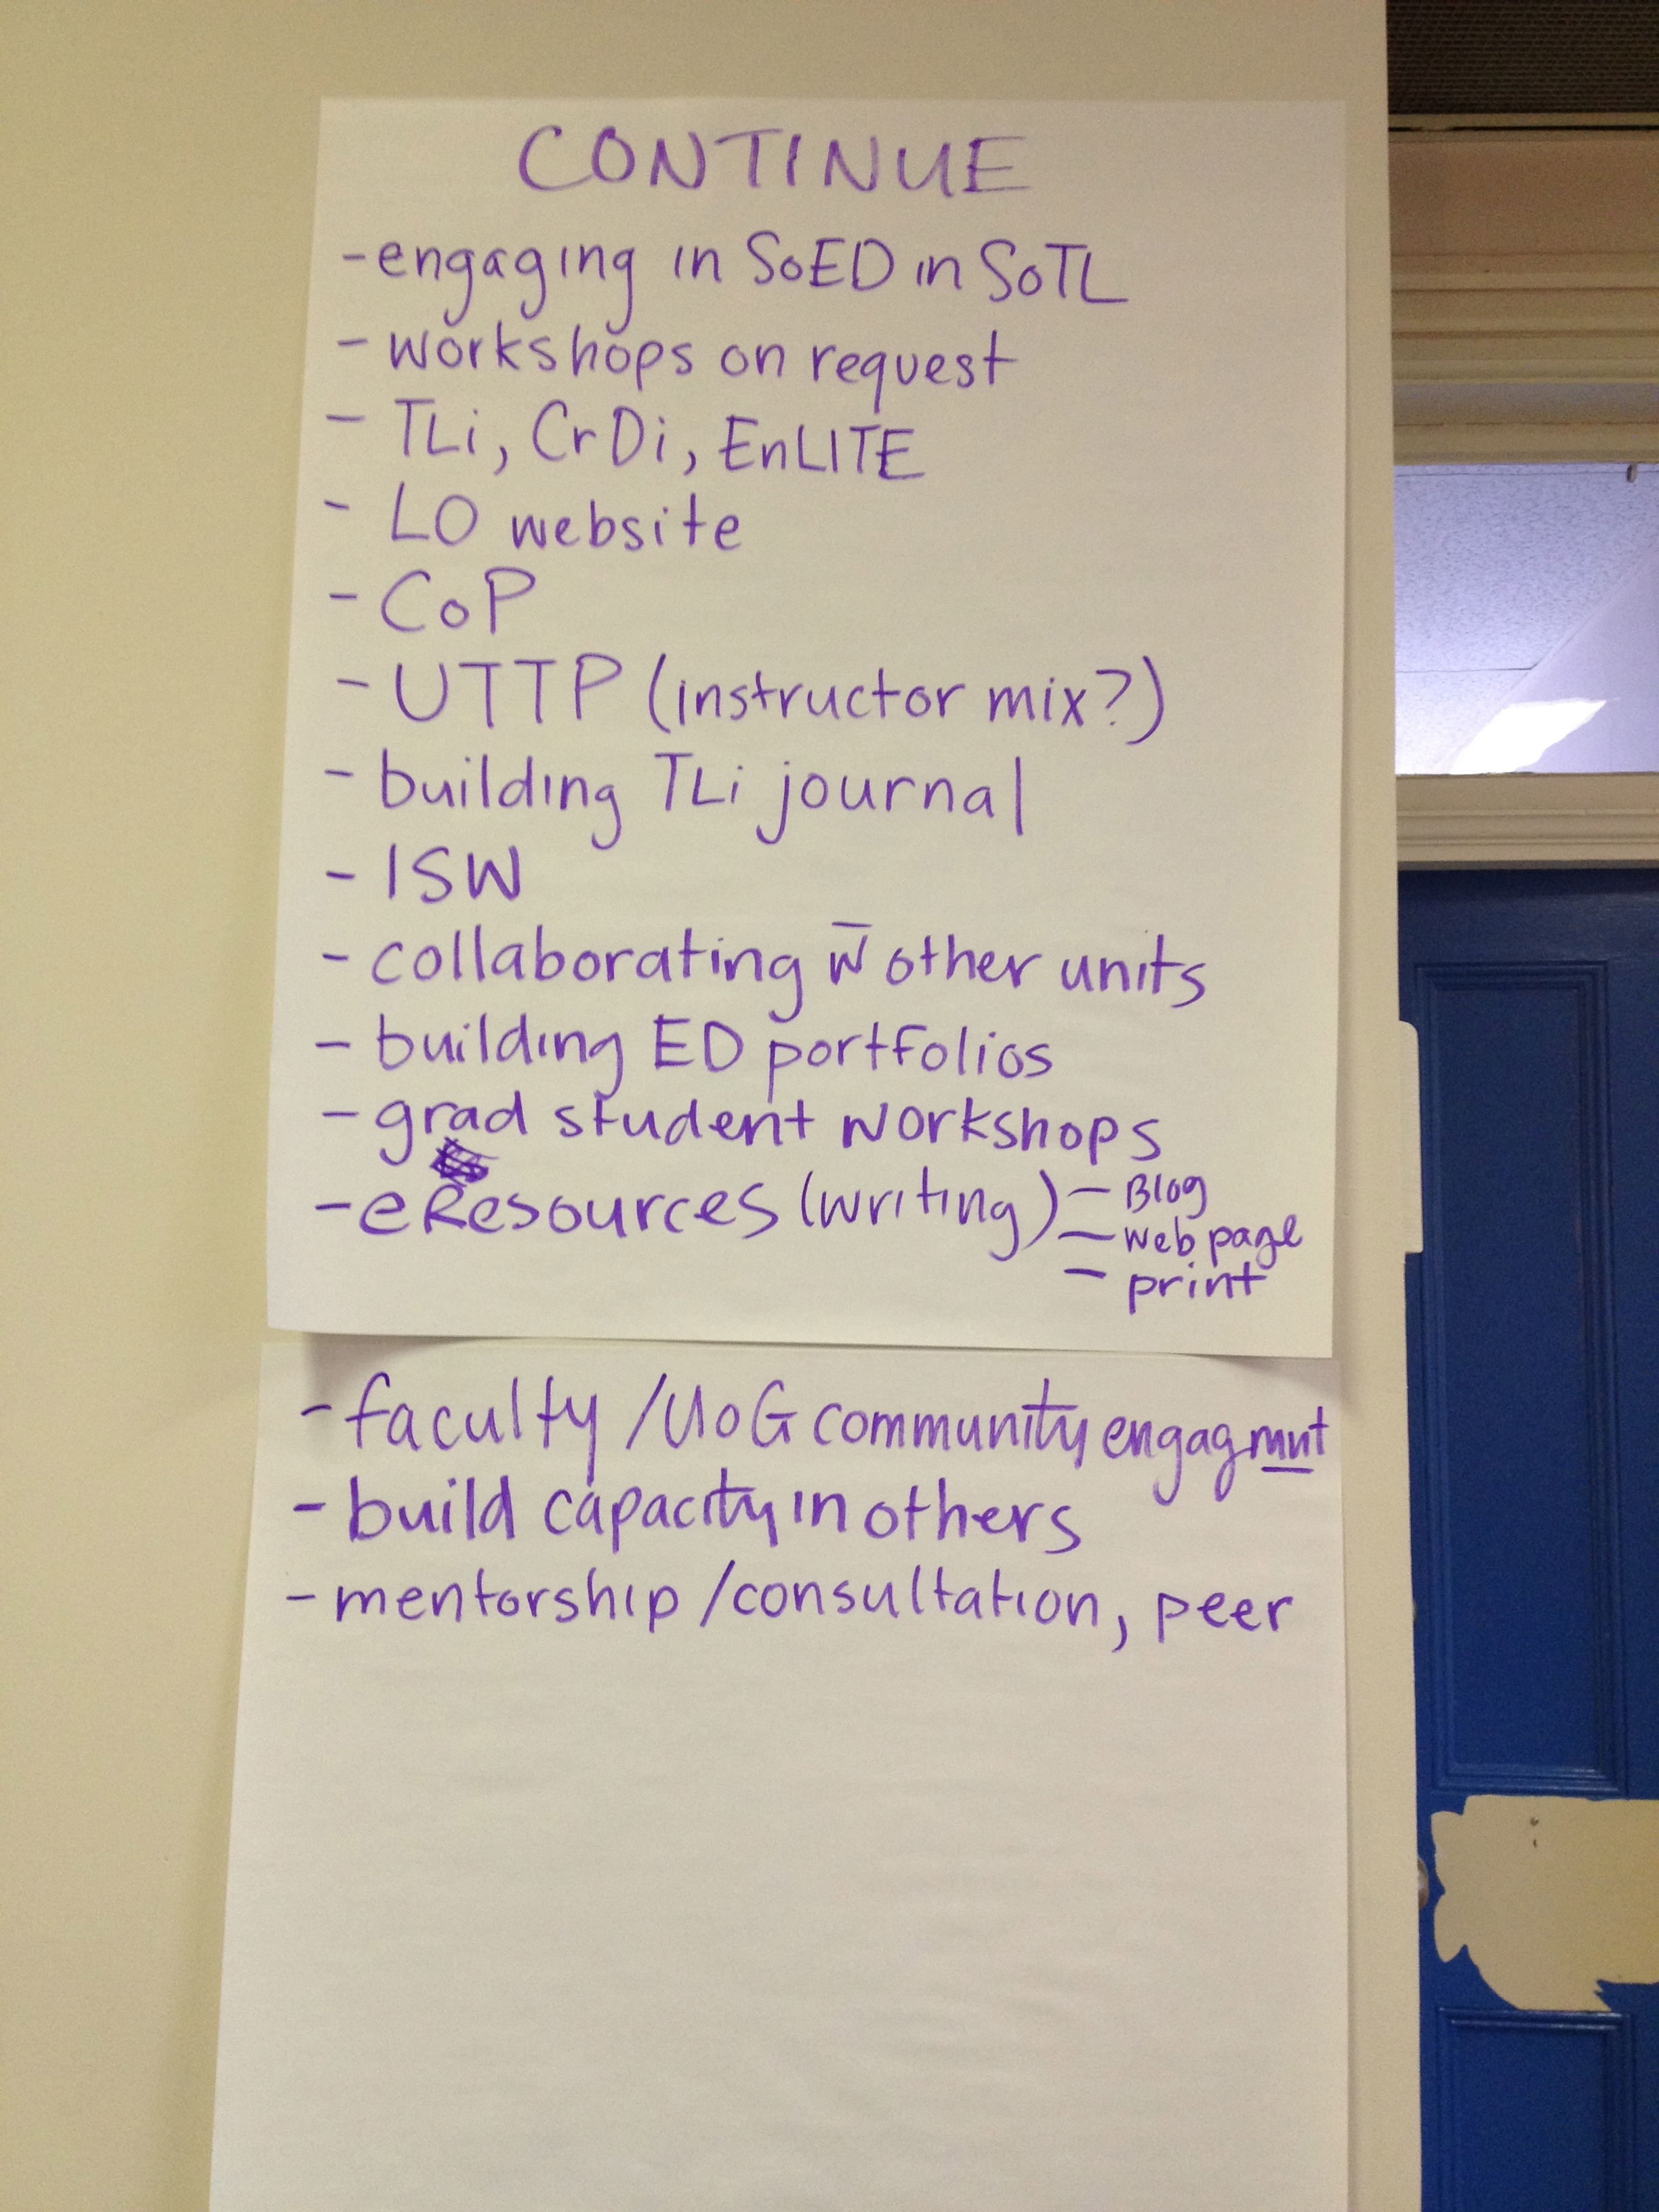 CONTINUE
- engaging in SoED in SoTL
- workshops on request
- TLi, CrDi, EnLITE
- LO website
- CoP
- UTTP (instructor mix?)
- building TLi journal
- ISW
- collaborating w̄ other units
- building ED portfolios
- grad student workshops
- eResources (writing) - Blog
- web page
- print
- faculty /UoG community engagmnt
- build capacity in others
- mentorship /consultation, peer